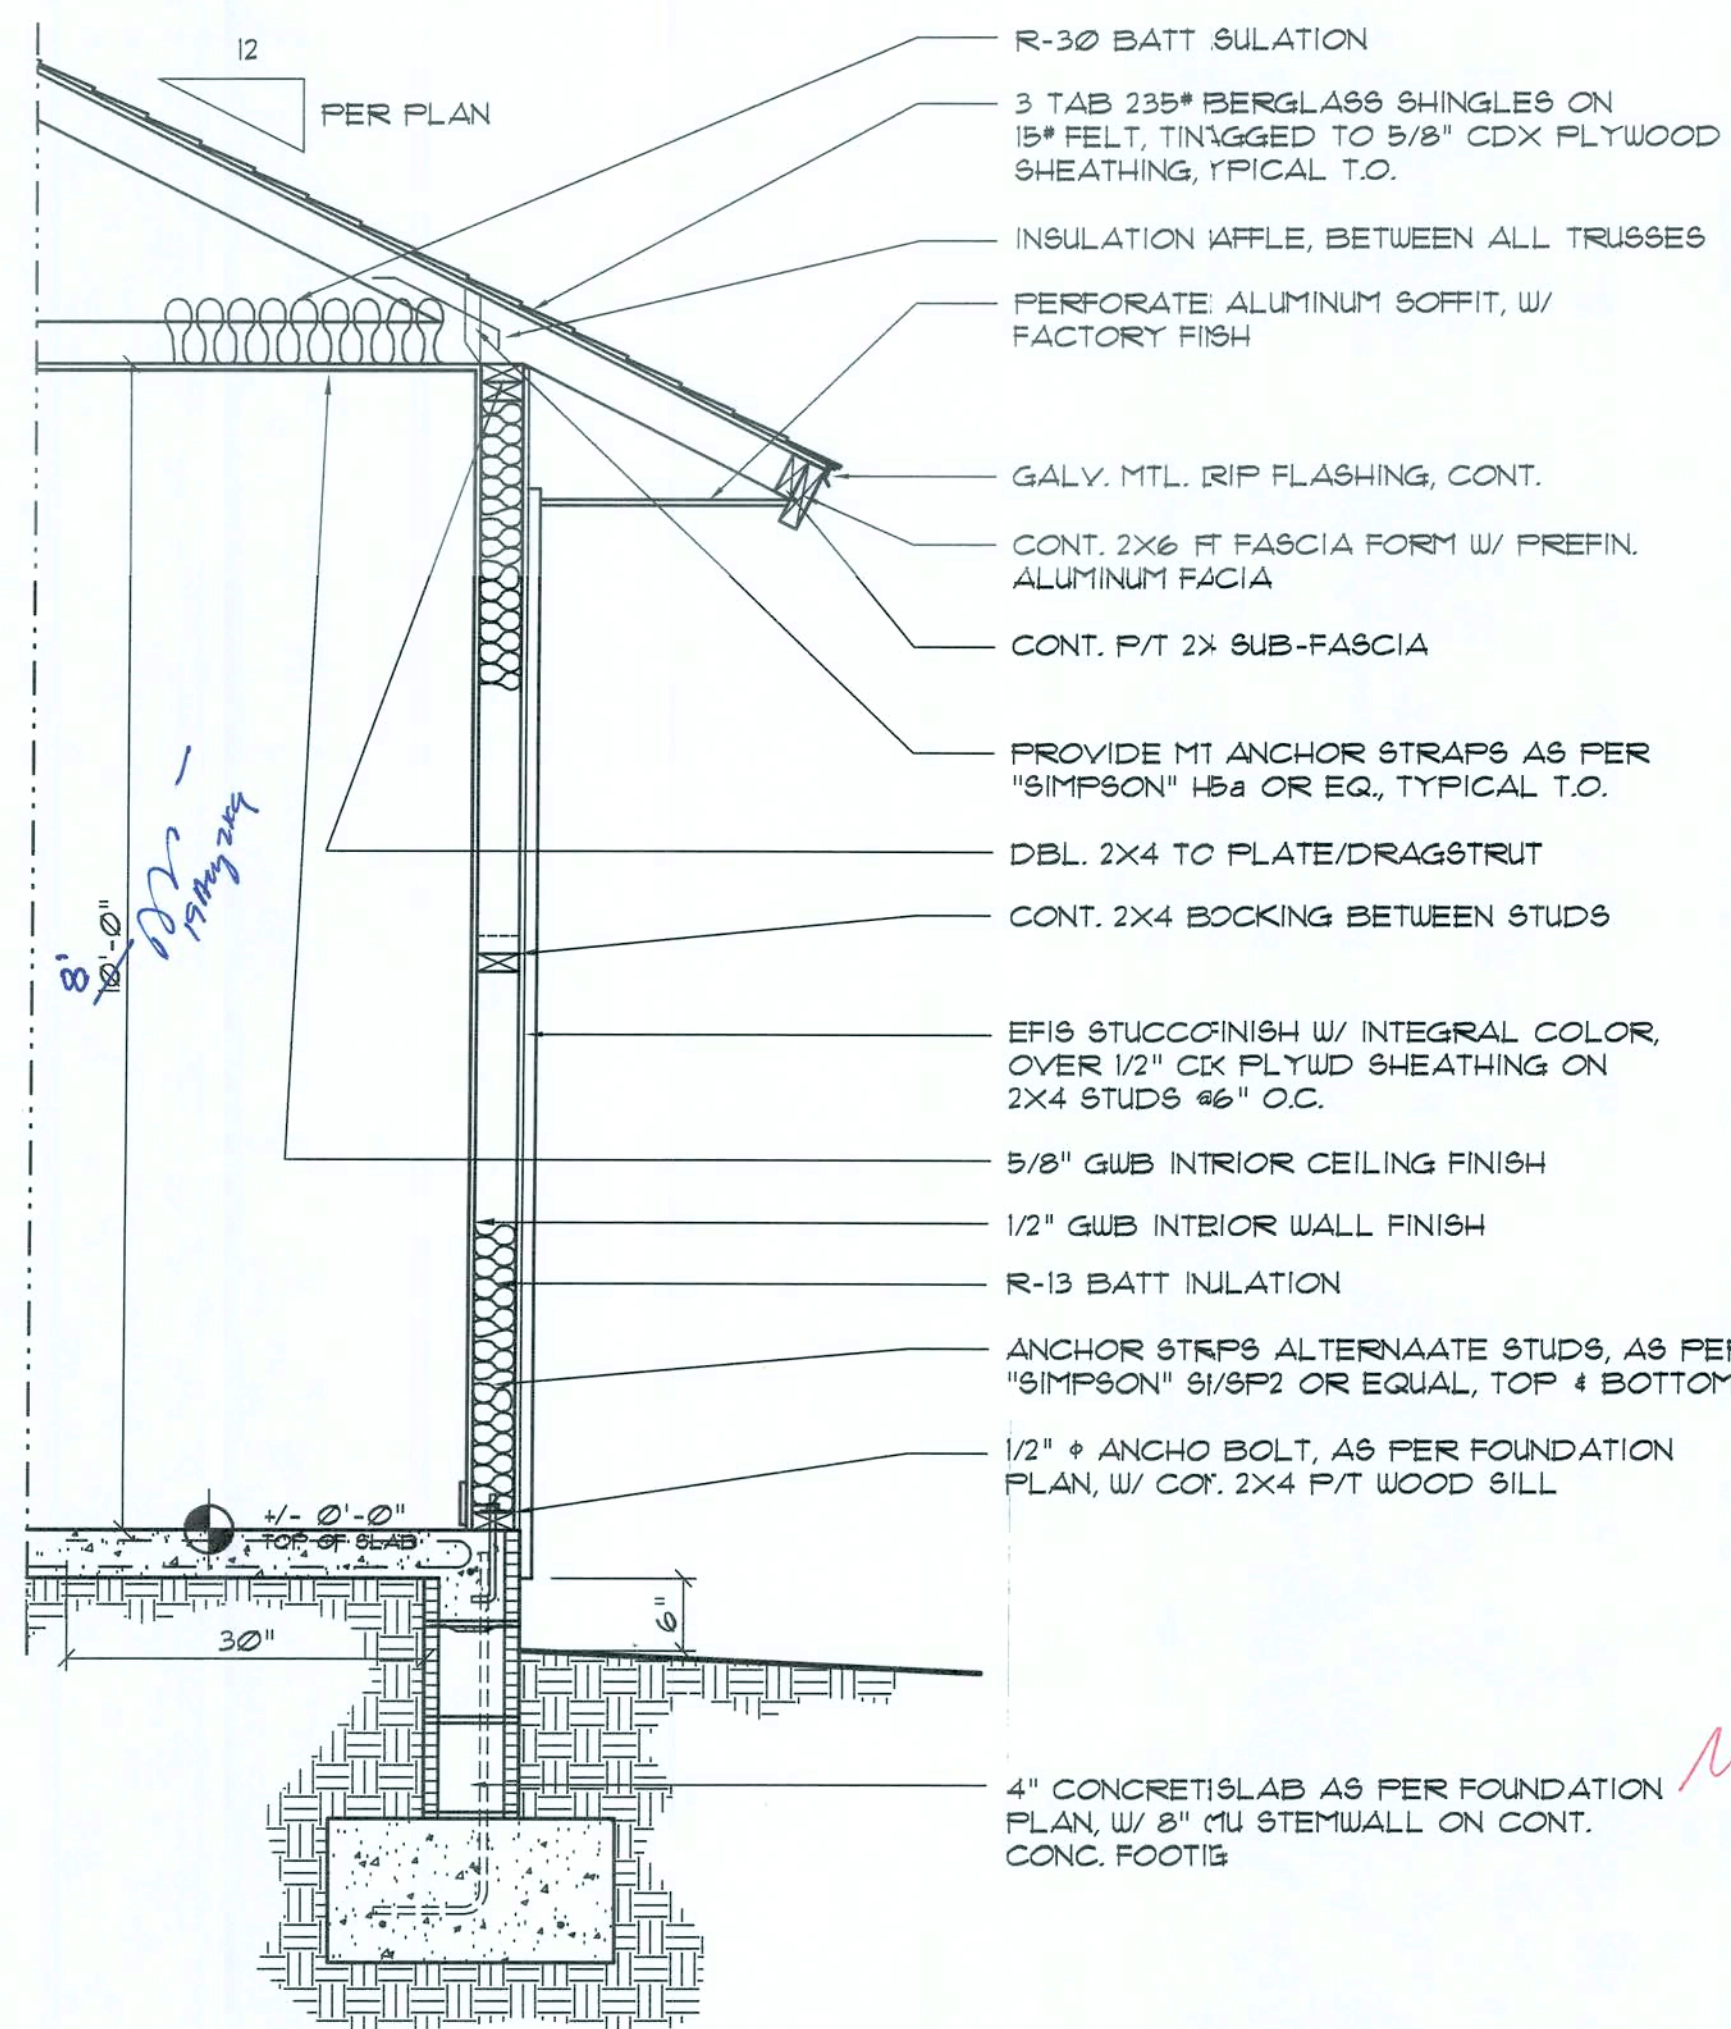 12
PER PLAN
R-30 BATT SULATION
3 TAB 235# BERGLASS SHINGLES ON
15# FELT, TINAGGED TO 5/8" CDX PLYWOOD
SHEATHING, YPICAL T.O.
INSULATION AFFLE, BETWEEN ALL TRUSSES
PERFORATE ALUMINUM SOFFIT, W/
FACTORY FIISH
GALV. MTL. RIP FLASHING, CONT.
CONT. 2X6 PT FASCIA FORM W/ PREFIN.
ALUMINUM FACIA
CONT. P/T 2X SUB-FASCIA
PROVIDE MT ANCHOR STRAPS AS PER
"SIMPSON" H5a OR EQ., TYPICAL T.O.
DBL. 2X4 TO PLATE/DRAGSTRUT
8'
10'-0"
CONT. 2X4 BOCKING BETWEEN STUDS
EFIS STUCCOFINISH W/ INTEGRAL COLOR,
OVER 1/2" CDX PLYWD SHEATHING ON
2X4 STUDS @6" O.C.
5/8" GWB INTRIOR CEILING FINISH
1/2" GWB INTERIOR WALL FINISH
R-13 BATT INULATION
ANCHOR STRPS ALTERNAATE STUDS, AS PER
"SIMPSON" SP1/SP2 OR EQUAL, TOP & BOTTOM
1/2" ϕ ANCHO BOLT, AS PER FOUNDATION
PLAN, W/ CON. 2X4 P/T WOOD SILL
+/- 0'-0"
TOP OF SLAB
6"
30"
4" CONCRETE SLAB AS PER FOUNDATION
PLAN, W/ 8" CMU STEMWALL ON CONT.
CONC. FOOTIG